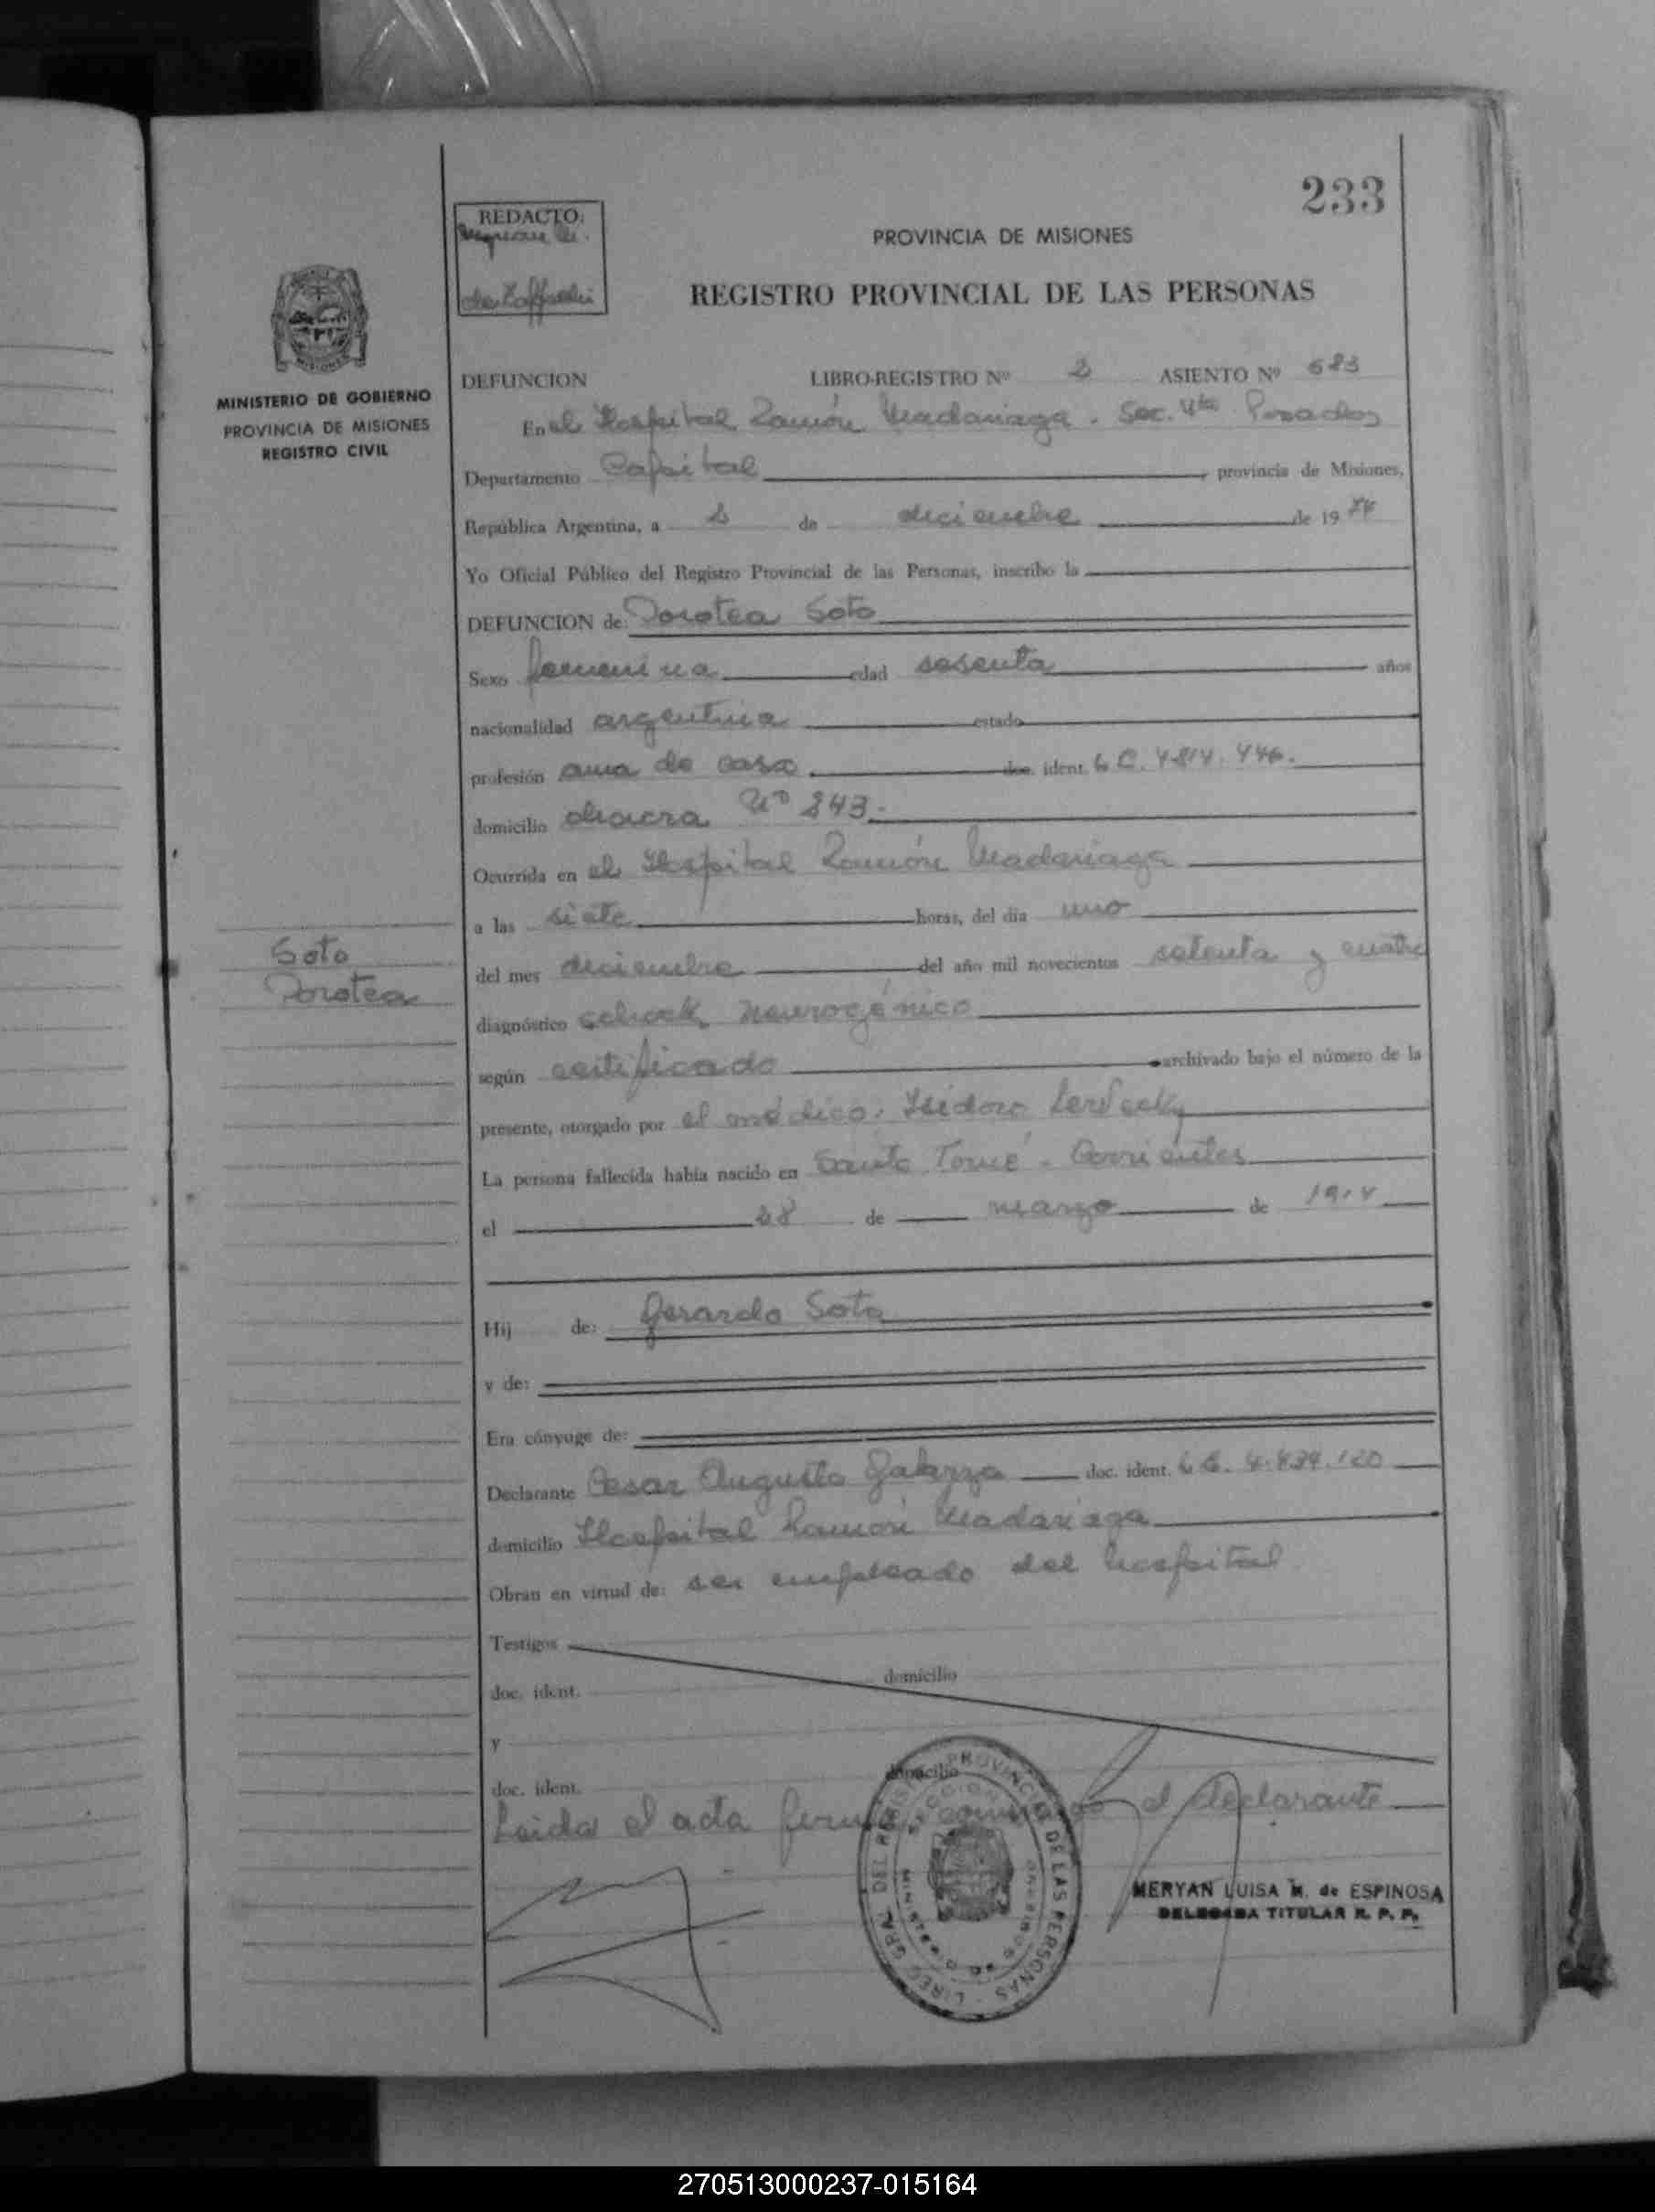 233
REDACTO:
PROVINCIA DE MISIONES
REGISTRO PROVINCIAL DE LAS PERSONAS
MINISTERIO DE GOBIERNO
PROVINCIA DE MISIONES
REGISTRO CIVIL
DEFUNCION LIBRO-REGISTRO Nº 2 ASIENTO Nº 683
En el Hospital Ramón Madariaga. Sec. 4ta Posadas
Departamento Capital, provincia de Misiones,
República Argentina, a 2 de diciembre de 1974
Yo Oficial Público del Registro Provincial de las Personas, inscribo la
DEFUNCION de: Dorotea Soto
Sexo femenina edad sesenta años
nacionalidad argentina estado
profesión ama de casa doc. ident. L C. 4.814.446.
domicilio chacra Nº 243.
Ocurrida en el Hospital Ramón Madariaga
a las siete horas, del día uno
Soto
Dorotea
del mes diciembre del año mil novecientos setenta y cuatro
diagnóstico schock neurogénico
según certificado archivado bajo el número de la
presente, otorgado por el médico. Isidoro
La persona fallecida había nacido en Santo Tomé - Corrientes
el 28 de marzo de 1914
Hij de: Gerardo Soto
y de:
Era cónyuge de:
Declarante Cesar Augusto Galarza doc. ident. 4.839.120
domicilio Hospital Ramón Madariaga
Obran en virtud de: ser empleado del hospital
Testigos
domicilio
doc. ident.
y
domicilio
doc. ident.
Leida el acta firma conmigo el declarante
MERYAN LUISA M. de ESPINOSA
DELEGADA TITULAR R. P. P.
270513000237-015164